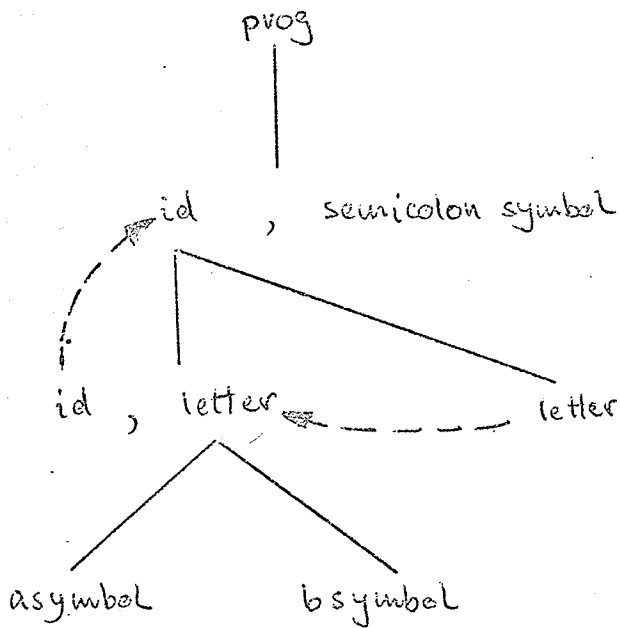 prog
id , semicolon symbol
id , letter letter
asymbol bsymbol